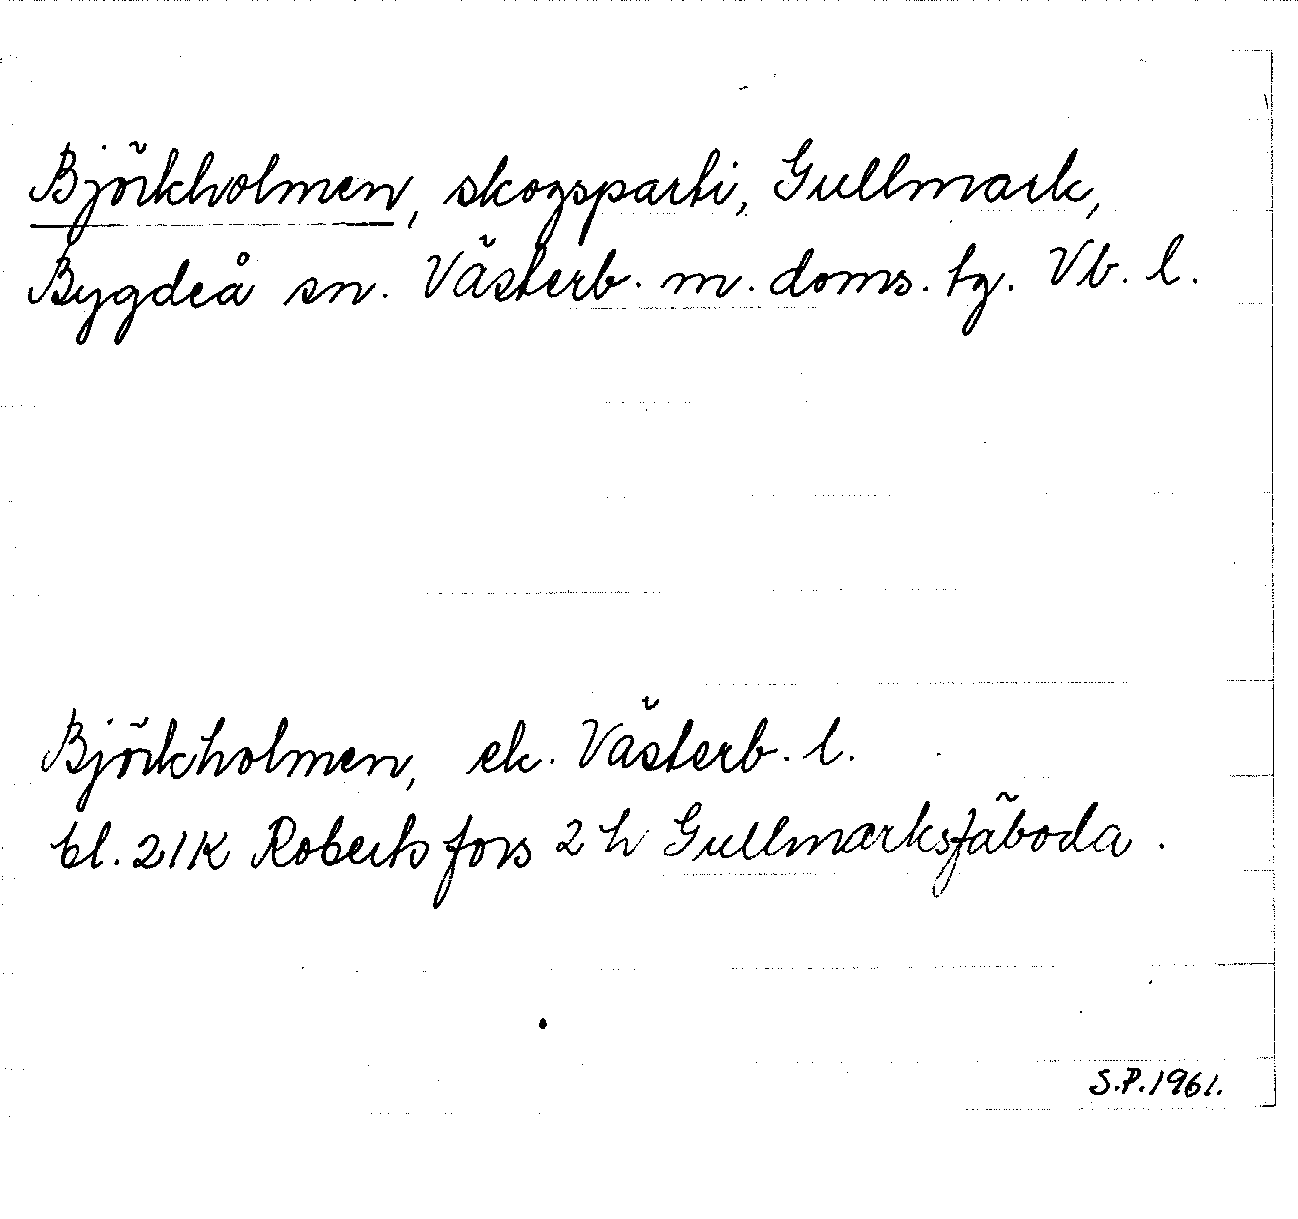 Björkholmen, skogsparti, Gullmark,
Bygdeå sn. Västerb. m. doms. tg. Vb. l.
Björkholmen, ek. Västerb. l.
bl. 21K Robertsfors 2 h Gullmarksfäboda.
S.P. 1961.